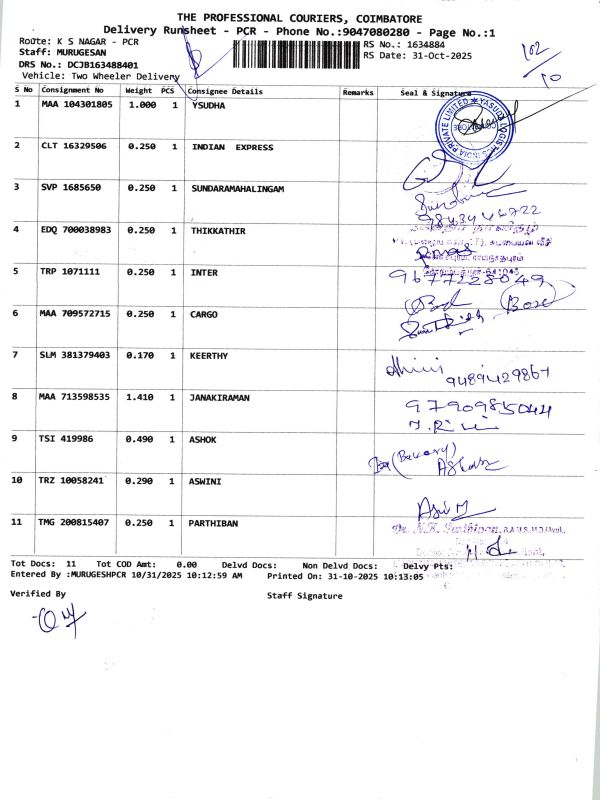 THE PROFESSIONAL COURIERS, COIMBATORE
Delivery Runsheet - PCR - Phone No.:9047080280 - Page No.:1
Route: K S NAGAR - PCR
Staff: MURUGESAN
DRS No.: DCJB163488401
Vehicle: Two Wheeler Delivery
RS No.: 1634884
RS Date: 31-Oct-2025
102/10
S No Consignment No Weight PCS Consignee Details Remarks Seal & Signature
1 MAA 104301805 1.000 1 YSUDHA
YASUDA LOGISTICS INDIA PRIVATE LIMITED
2 CLT 16329506 0.250 1 INDIAN EXPRESS
3 SVP 1685650 0.250 1 SUNDARAMAHALINGAM
9843446722
4 EDQ 700038983 0.250 1 THIKKATHIR
5 TRP 1071111 0.250 1 INTER
9677228049
6 MAA 709572715 0.250 1 CARGO
Bose
7 SLM 381379403 0.170 1 KEERTHY
9489429867
8 MAA 713598535 1.410 1 JANAKIRAMAN
9790985044
9 TSI 419986 0.490 1 ASHOK
10 TRZ 10058241 0.290 1 ASWINI
11 TMG 200815407 0.250 1 PARTHIBAN
Tot Docs: 11 Tot COD Amt: 0.00 Delvd Docs: Non Delvd Docs: Delvy Pts:
Entered By :MURUGESHPCR 10/31/2025 10:12:59 AM Printed On: 31-10-2025 10:13:05
Verified By
Staff Signature